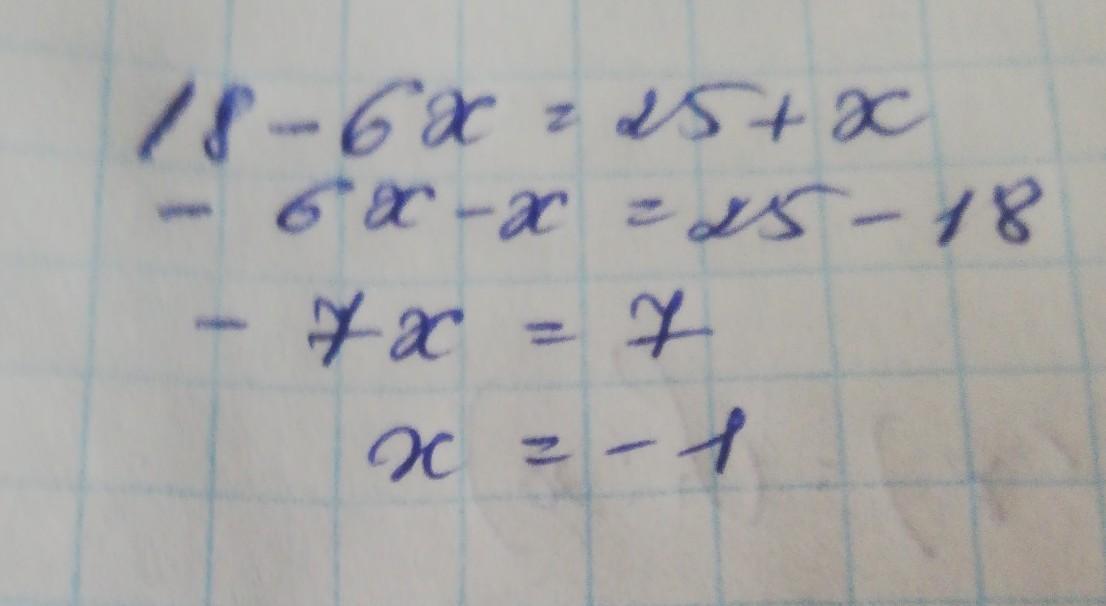 18 - 6x = 25 + x
- 6x - x = 25 - 18
- 7x = 7
x = - 1